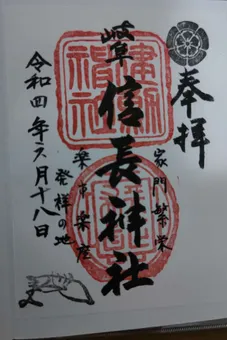 奉拝
家門繁栄
岐阜
信長神社
建勲神社
楽市楽座
発祥の地
令和四年六月十八日